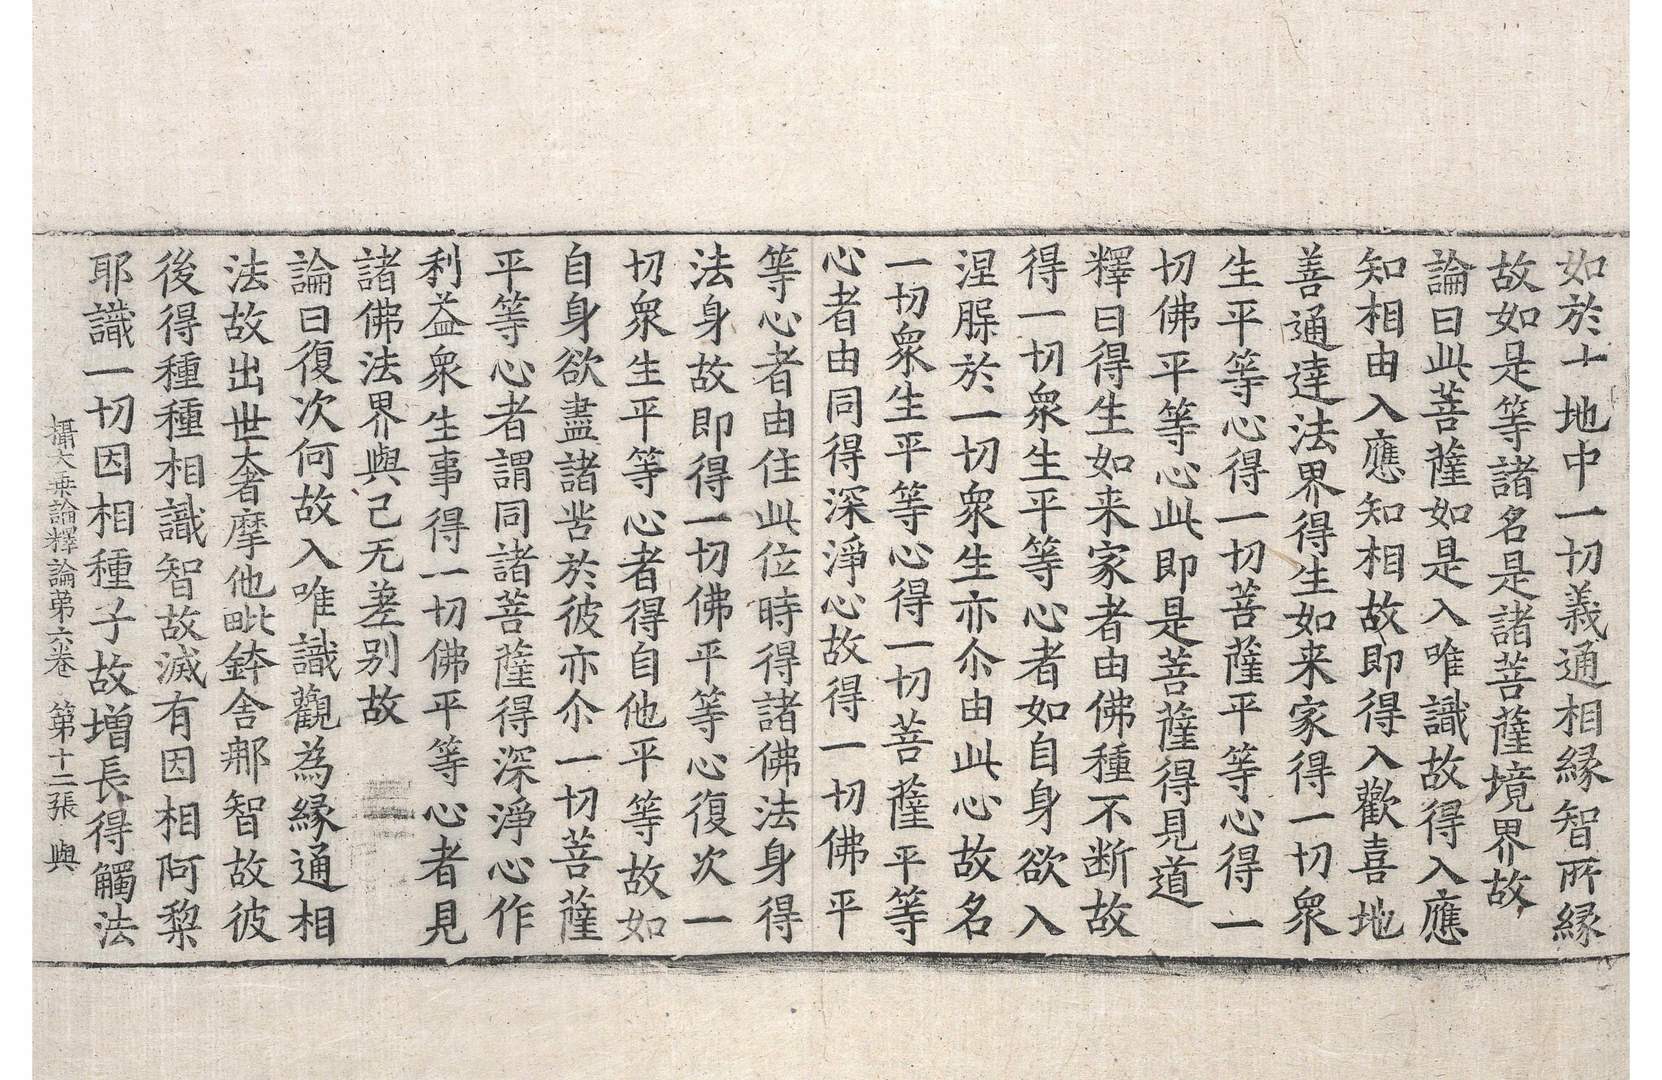 如於十地中一切義通相縁智所縁
故如是等諸名是諸菩薩境界故
論曰此菩薩如是入唯識故得入應
知相由入應知相故即得入歡喜地
善通達法界得生如来家得一切衆
生平等心得一切菩薩平等心得一
切佛平等心此即是菩薩得見道
釋曰得生如来家者由佛種不断故
得一切衆生平等心者如自身欲入
涅槃於一切衆生亦尒由此心故名
一切衆生平等心得一切菩薩平等
心者由同得深淨心故得一切佛平
等心者由住此位時得諸佛法身得
法身故即得一切佛平等心復次一
切衆生平等心者得自他平等故如
自身欲盡諸苦於彼亦尒一切菩薩
平等心者謂同諸菩薩得深淨心作
利益衆生事得一切佛平等心者見
諸佛法界與己无差别故
論曰復次何故入唯識觀為縁通相
法故出世大奢摩他毗鉢舍那智故彼
後得種種相識智故滅有因相阿黎
耶識一切因相種子故增長得觸法
攝大乗論釋論第六卷 第十二張 與